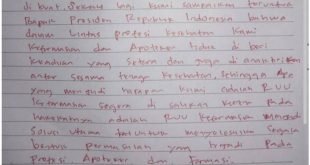 di buat. Sekarang lagi kami sampaikan terutama
Bapak Presiden Republik Indonesia bahwa
dalam Lintas profesi kesehatan kami
Kefarmasian dan Apoteker tidak di beri
keadilan yang setara dan juga di
antar sesama tenaga kesehatan, sehingga
yang menjadi harapan kami adalah RUU
Kefarmasian segera di sahkan karena pada
hakikatnya adalah RUU kefarmasian
Solusi utama untuk menyelesaikan segala
bentuk permasalahan yang terjadi pada
Profesi Apoteker dan Farmasi.